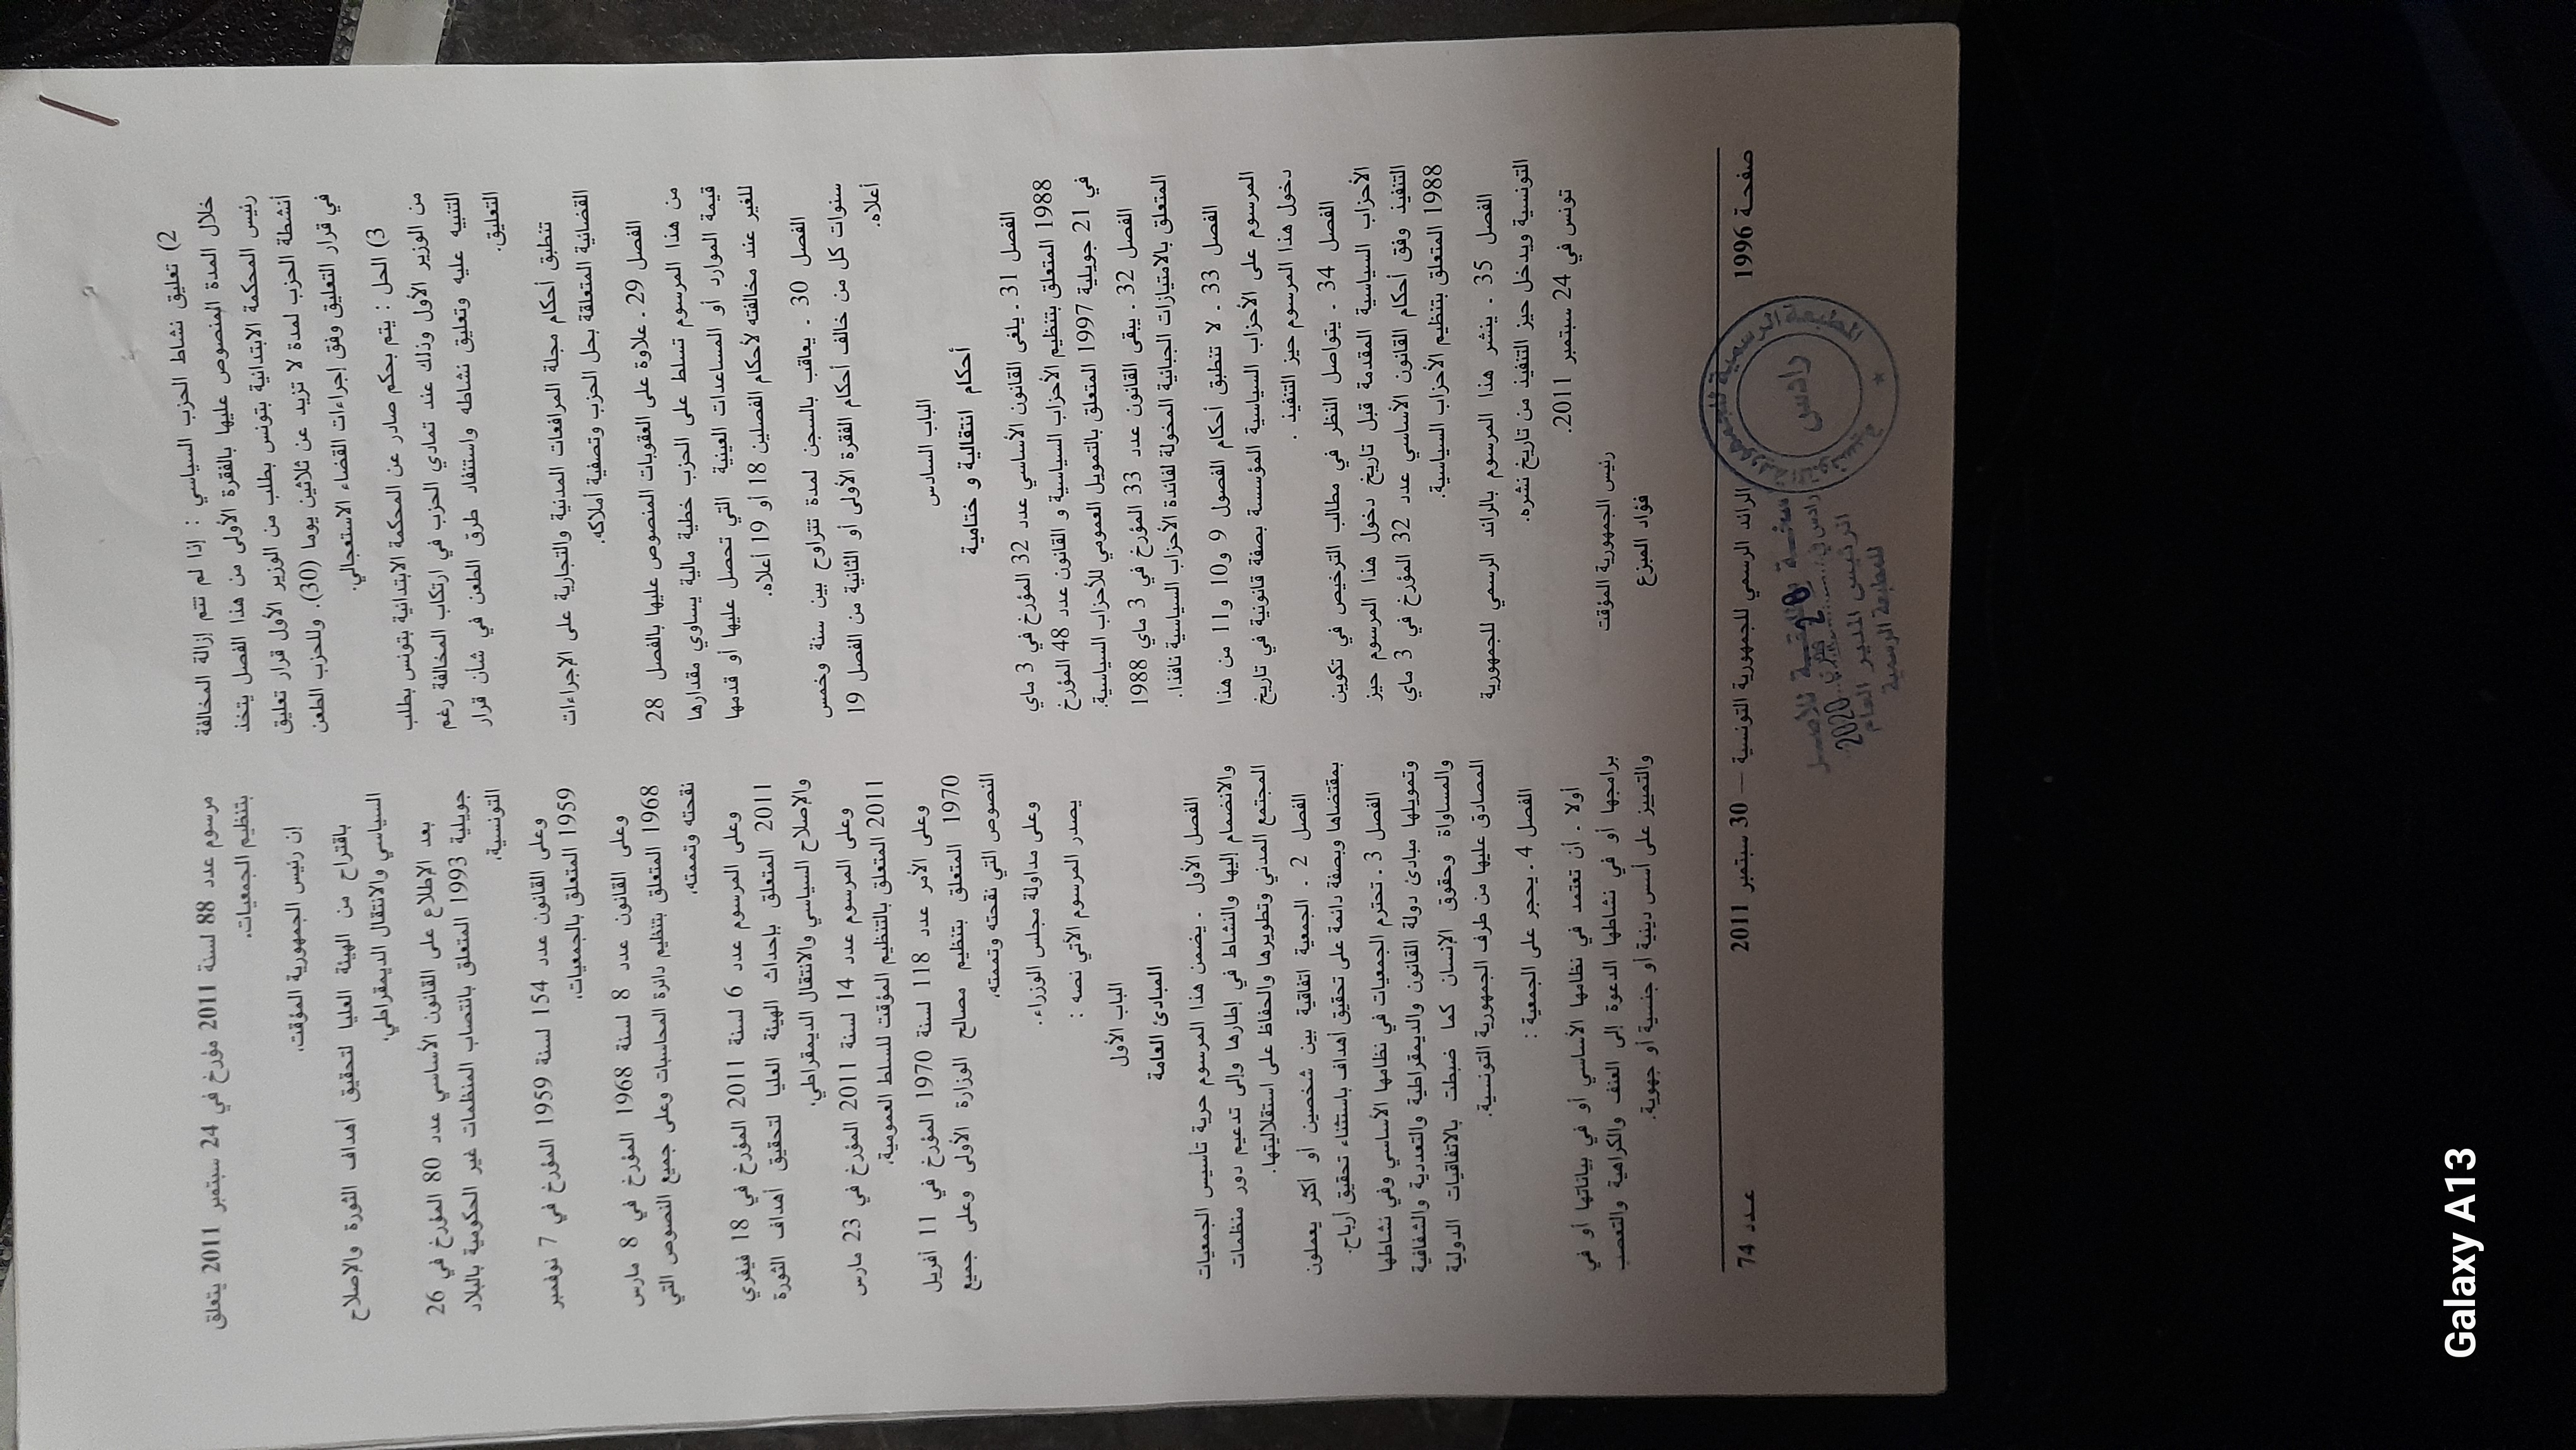 2) تعليق نشاط الحزب السياسي : إذا لم تتم إزالة المخالفة
خلال المدة المنصوص عليها بالفقرة الأولى من هذا الفصل يتخذ
رئيس المحكمة الابتدائية بتونس بطلب من الوزير الأول قرار تعليق
أنشطة الحزب لمدة لا تزيد عن ثلاثين يوما (30). وللحزب الطعن
في قرار التعليق وفق إجراءات القضاء الاستعجالي.
3) الحل : يتم بحكم صادر عن المحكمة الابتدائية بتونس بطلب
من الوزير الأول وذلك عند تمادي الحزب في ارتكاب المخالفة رغم
التنبيه عليه وتعليق نشاطه واستنفاد طرق الطعن في شأن قرار
التعليق.
تنطبق أحكام مجلة المرافعات المدنية والتجارية على الإجراءات
القضائية المتعلقة بحل الحزب وتصفية أملاكه.
الفصل 29 ـ علاوة على العقوبات المنصوص عليها بالفصل 28
من هذا المرسوم تسلط على الحزب خطية مالية يساوي مقدارها
قيمة الموارد أو المساعدات العينية التي تحصل عليها أو قدمها
للغير عند مخالفته لأحكام الفصلين 18 أو 19 أعلاه.
الفصل 30 ـ يعاقب بالسجن لمدة تتراوح بين سنة وخمس
سنوات كل من خالف أحكام الفقرة الأولى أو الثانية من الفصل 19
أعلاه.
الباب السادس
أحكام انتقالية و ختامية
الفصل 31 ـ يلغى القانون الأساسي عدد 32 المؤرخ في 3 ماي
1988 المتعلق بتنظيم الأحزاب السياسية و القانون عدد 48 المؤرخ
في 21 جويلية 1997 المتعلق بالتمويل العمومي للأحزاب السياسية.
الفصل 32 ـ يبقى القانون عدد 33 المؤرخ في 3 ماي 1988
المتعلق بالامتيازات الجبائية المخولة لفائدة الأحزاب السياسية نافذا.
الفصل 33 ـ لا تنطبق أحكام الفصول 9 و10 و11 من هذا
المرسوم على الأحزاب السياسية المؤسسة بصفة قانونية في تاريخ
دخول هذا المرسوم حيز التنفيذ .
الفصل 34 ـ يتواصل النظر في مطالب الترخيص في تكوين
الأحزاب السياسية المقدمة قبل تاريخ دخول هذا المرسوم حيز
التنفيذ وفق أحكام القانون الأساسي عدد 32 المؤرخ في 3 ماي
1988 المتعلق بتنظيم الأحزاب السياسية.
الفصل 35 ـ ينشر هذا المرسوم بالرائد الرسمي للجمهورية
التونسية ويدخل حيز التنفيذ من تاريخ نشره.
تونس في 24 سبتمبر 2011.
رئيس الجمهورية المؤقت
فؤاد المبزع
مرسوم عدد 88 لسنة 2011 مؤرخ في 24 سبتمبر 2011 يتعلق
بتنظيم الجمعيات.
إن رئيس الجمهورية المؤقت،
باقتراح من الهيئة العليا لتحقيق أهداف الثورة والإصلاح
السياسي والانتقال الديمقراطي،
بعد الإطلاع على القانون الأساسي عدد 80 المؤرخ في 26
جويلية 1993 المتعلق بانتصاب المنظمات غير الحكومية بالبلاد
التونسية،
وعلى القانون عدد 154 لسنة 1959 المؤرخ في 7 نوفمبر
1959 المتعلق بالجمعيات،
وعلى القانون عدد 8 لسنة 1968 المؤرخ في 8 مارس
1968 المتعلق بتنظيم دائرة المحاسبات وعلى جميع النصوص التي
نقحته وتممته،
وعلى المرسوم عدد 6 لسنة 2011 المؤرخ في 18 فيفري
2011 المتعلق بإحداث الهيئة العليا لتحقيق أهداف الثورة
والإصلاح السياسي والانتقال الديمقراطي،
وعلى المرسوم عدد 14 لسنة 2011 المؤرخ في 23 مارس
2011 المتعلق بالتنظيم المؤقت للسلط العمومية،
وعلى الأمر عدد 118 لسنة 1970 المؤرخ في 11 أفريل
1970 المتعلق بتنظيم مصالح الوزارة الأولى وعلى جميع
النصوص التي نقحته وتممته،
وعلى مداولة مجلس الوزراء.
يصدر المرسوم الآتي نصه :
الباب الأول
المبادئ العامة
الفصل الأول ـ يضمن هذا المرسوم حرية تأسيس الجمعيات
والانضمام إليها والنشاط في إطارها وإلى تدعيم دور منظمات
المجتمع المدني وتطويرها والحفاظ على استقلاليتها.
الفصل 2 ـ الجمعية اتفاقية بين شخصين أو أكثر يعملون
بمقتضاها وبصفة دائمة على تحقيق أهداف باستثناء تحقيق أرباح.
الفصل 3 ـ تحترم الجمعيات في نظامها الأساسي وفي نشاطها
وتمويلها مبادئ دولة القانون والديمقراطية والتعددية والشفافية
والمساواة وحقوق الإنسان كما ضبطت بالاتفاقيات الدولية
المصادق عليها من طرف الجمهورية التونسية.
الفصل 4 ـ يحجر على الجمعية :
أولا ـ أن تعتمد في نظامها الأساسي أو في بياناتها أو في
برامجها أو في نشاطها الدعوة إلى العنف والكراهية والتعصب
والتمييز على أسس دينية أو جنسية أو جهوية.
صفحة 1996
الرائد الرسمي للجمهورية التونسية — 30 سبتمبر 2011
عدد 74
المطبعة الرسمية للجمهورية التونسية
رادس
نسخة مطابقة للأصل
رادس في 2020
الرئيس المدير العام
للمطبعة الرسمية
Galaxy A13